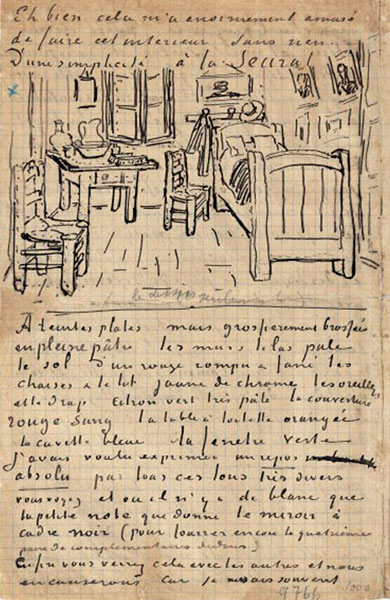 Eh bien cela m'a enormement amusé
de faire cet interieur sans rien
D'une simplicité à la Seurat
A teintes plates mais grossierement brossées
en pleine pâte les murs lilas pale
le sol d'un rouge rompu & fané les
chaises & le lit jaune de chrome les oreillers
et le drap citron vert très pâle la couverture
rouge sang la table à toilette orangée
la cuvette bleue la fenetre verte
J'avais voulu exprimer un repos
absolu par tous ces tons très divers
vous voyez et où il n'y a de blanc que
la petite note que donne le miroir à
cadre noir (pour fourrer encore la quatrième
paire de complementaires dedans)
Enfin vous verrez cela avec les autres et nous
en causerons car je ne sais souvent
9766